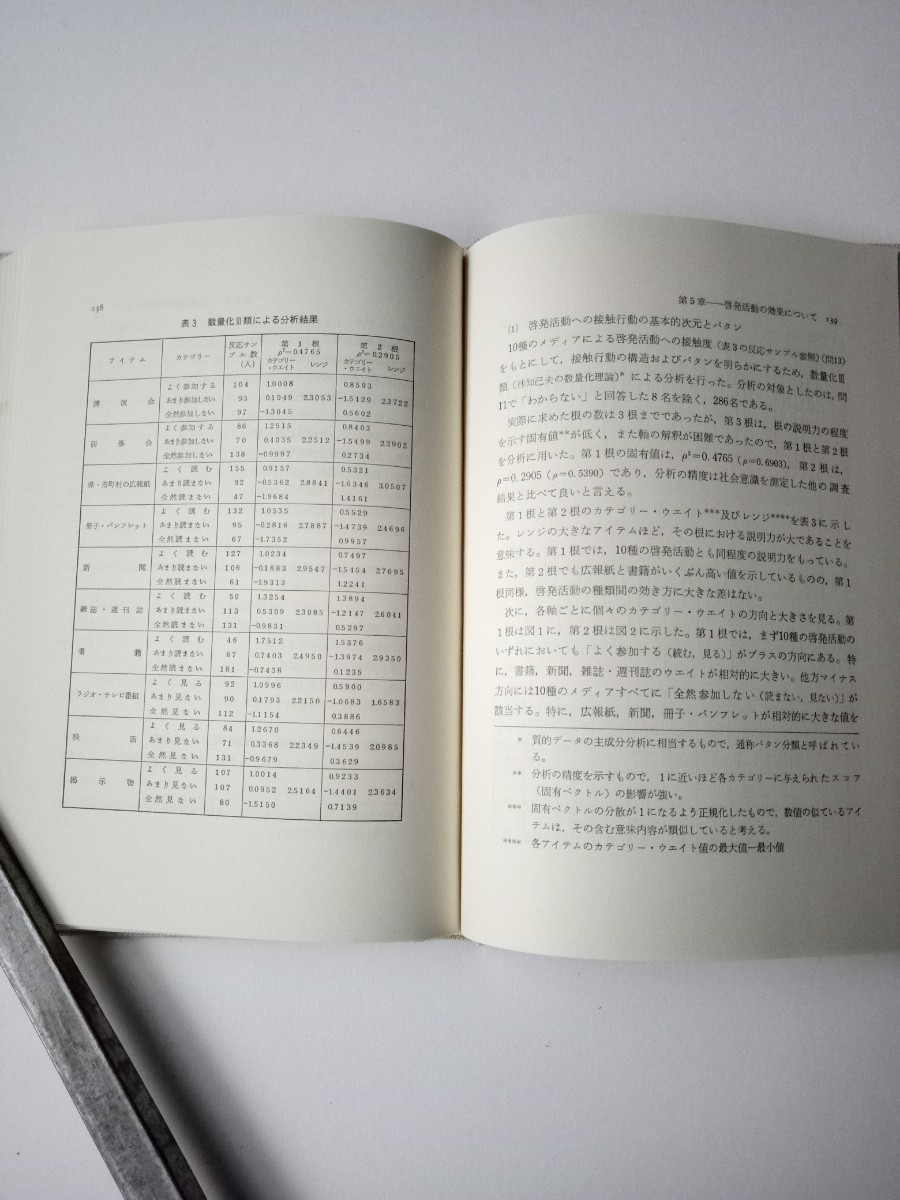 138
表3 数量化Ⅲ類による分析結果
アイテム カテゴリー 反応サンプル数(人) 第1根 ρ²=0.4765 カテゴリー・ウエイト レンジ 第2根 ρ²=0.2905 カテゴリー・ウエイト レンジ
講演会 よく参加する 104 1.0008 0.8593
あまり参加しない 93 0.1949 2.3053 -1.5129 2.3722
全然参加しない 97 -1.3045 0.5602
よく参加する 86 1.2515 0.8403
あまり参加しない 70 0.4035 2.2512 -1.5499 2.3902
全然参加しない 138 -0.9997 0.2734
県・市町村の広報紙 よく読む 155 0.9157 0.5321
あまり読まない 92 -0.5362 2.8841 -1.6346 3.0507
全然読まない 47 -1.9684 1.4161
冊子・パンフレット よく読む 132 1.0535 0.5529
あまり読まない 95 -0.2816 2.7887 -1.4739 2.4696
全然読まない 67 -1.7352 0.9957
新聞 よく読む 127 1.0234 0.7497
あまり読まない 106 -0.1883 2.9547 -1.5454 2.7695
全然読まない 61 -1.9313 1.2241
雑誌・週刊誌 よく読む 50 1.3254 1.3894
あまり読まない 113 0.5309 2.3085 -1.2147 2.6041
全然読まない 131 -0.9831 0.5297
書籍 よく読む 46 1.7512 1.5376
あまり読まない 67 0.7403 2.4950 -1.3974 2.9350
全然読まない 181 -0.7438 0.1235
ラジオ・テレビ番組 よく見る 92 1.0996 0.5900
あまり見ない 90 0.1793 2.2150 -1.0683 1.6583
全然見ない 112 -1.1154 0.3886
映画 よく見る 84 1.2670 0.6446
あまり見ない 71 0.3368 2.2349 -1.4539 2.0985
全然見ない 131 -0.9679 0.3629
掲示物 よく見る 107 1.0014 0.9233
あまり見ない 107 0.0952 2.5164 -1.4401 2.3634
全然見ない 80 -1.5150 0.7139
第5章——啓発活動の効果について 139
(1) 啓発活動への接触行動の基本的次元とパタン
10種のメディアによる啓発活動への接触度(表3の反応サンプル参照)(問13)
をもとにして,接触行動の構造およびパタンを明らかにするため,数量化Ⅲ
類(林知己夫の数量化理論)*による分析を行った。分析の対象としたのは,問
11で「わからない」と回答した8名を除く,286名である。
実際に求めた根の数は3根までであったが,第3根は,根の説明力の程度
を示す固有値**が低く,また軸の解釈が困難であったので,第1根と第2根
を分析に用いた。第1根の固有値は,ρ²=0.4765(ρ=0.6903),第2根は,
ρ=0.2905(ρ=0.5390)であり,分析の精度は社会意識を測定した他の調査
結果と比べて良いと言える。
第1根と第2根のカテゴリー・ウエイト***及びレンジ****を表3に示し
た。レンジの大きなアイテムほど,その根における説明力が大であることを
意味する。第1根では,10種の啓発活動とも同程度の説明力をもっている。
また,第2根でも広報紙と書籍がいくぶん高い値を示しているものの,第1
根同様,啓発活動の種類間の効き方に大きな差はない。
次に,各軸ごとに個々のカテゴリー・ウエイトの方向と大きさを見る。第
1根は図1に,第2根は図2に示した。第1根では,まず10種の啓発活動の
いずれにおいても「よく参加する(読む,見る)」がプラスの方向にある。特
に,書籍,新聞,雑誌・週刊誌のウエイトが相対的に大きい。他方マイナス
方向には10種のメディアすべてに「全然参加しない(読まない,見ない)」が
該当する。特に,広報紙,新聞,冊子・パンフレットが相対的に大きな値を
* 質的データの主成分分析に相当するもので,通称パタン分類と呼ばれてい
る。
** 分析の精度を示すもので,1に近いほど各カテゴリーに与えられたスコア
(固有ベクトル)の影響が強い。
*** 固有ベクトルの分散が1になるよう正規化したもので,数値の似ているアイ
テムは,その含む意味内容が類似していると考える。
**** 各アイテムのカテゴリー・ウエイト値の最大値—最小値